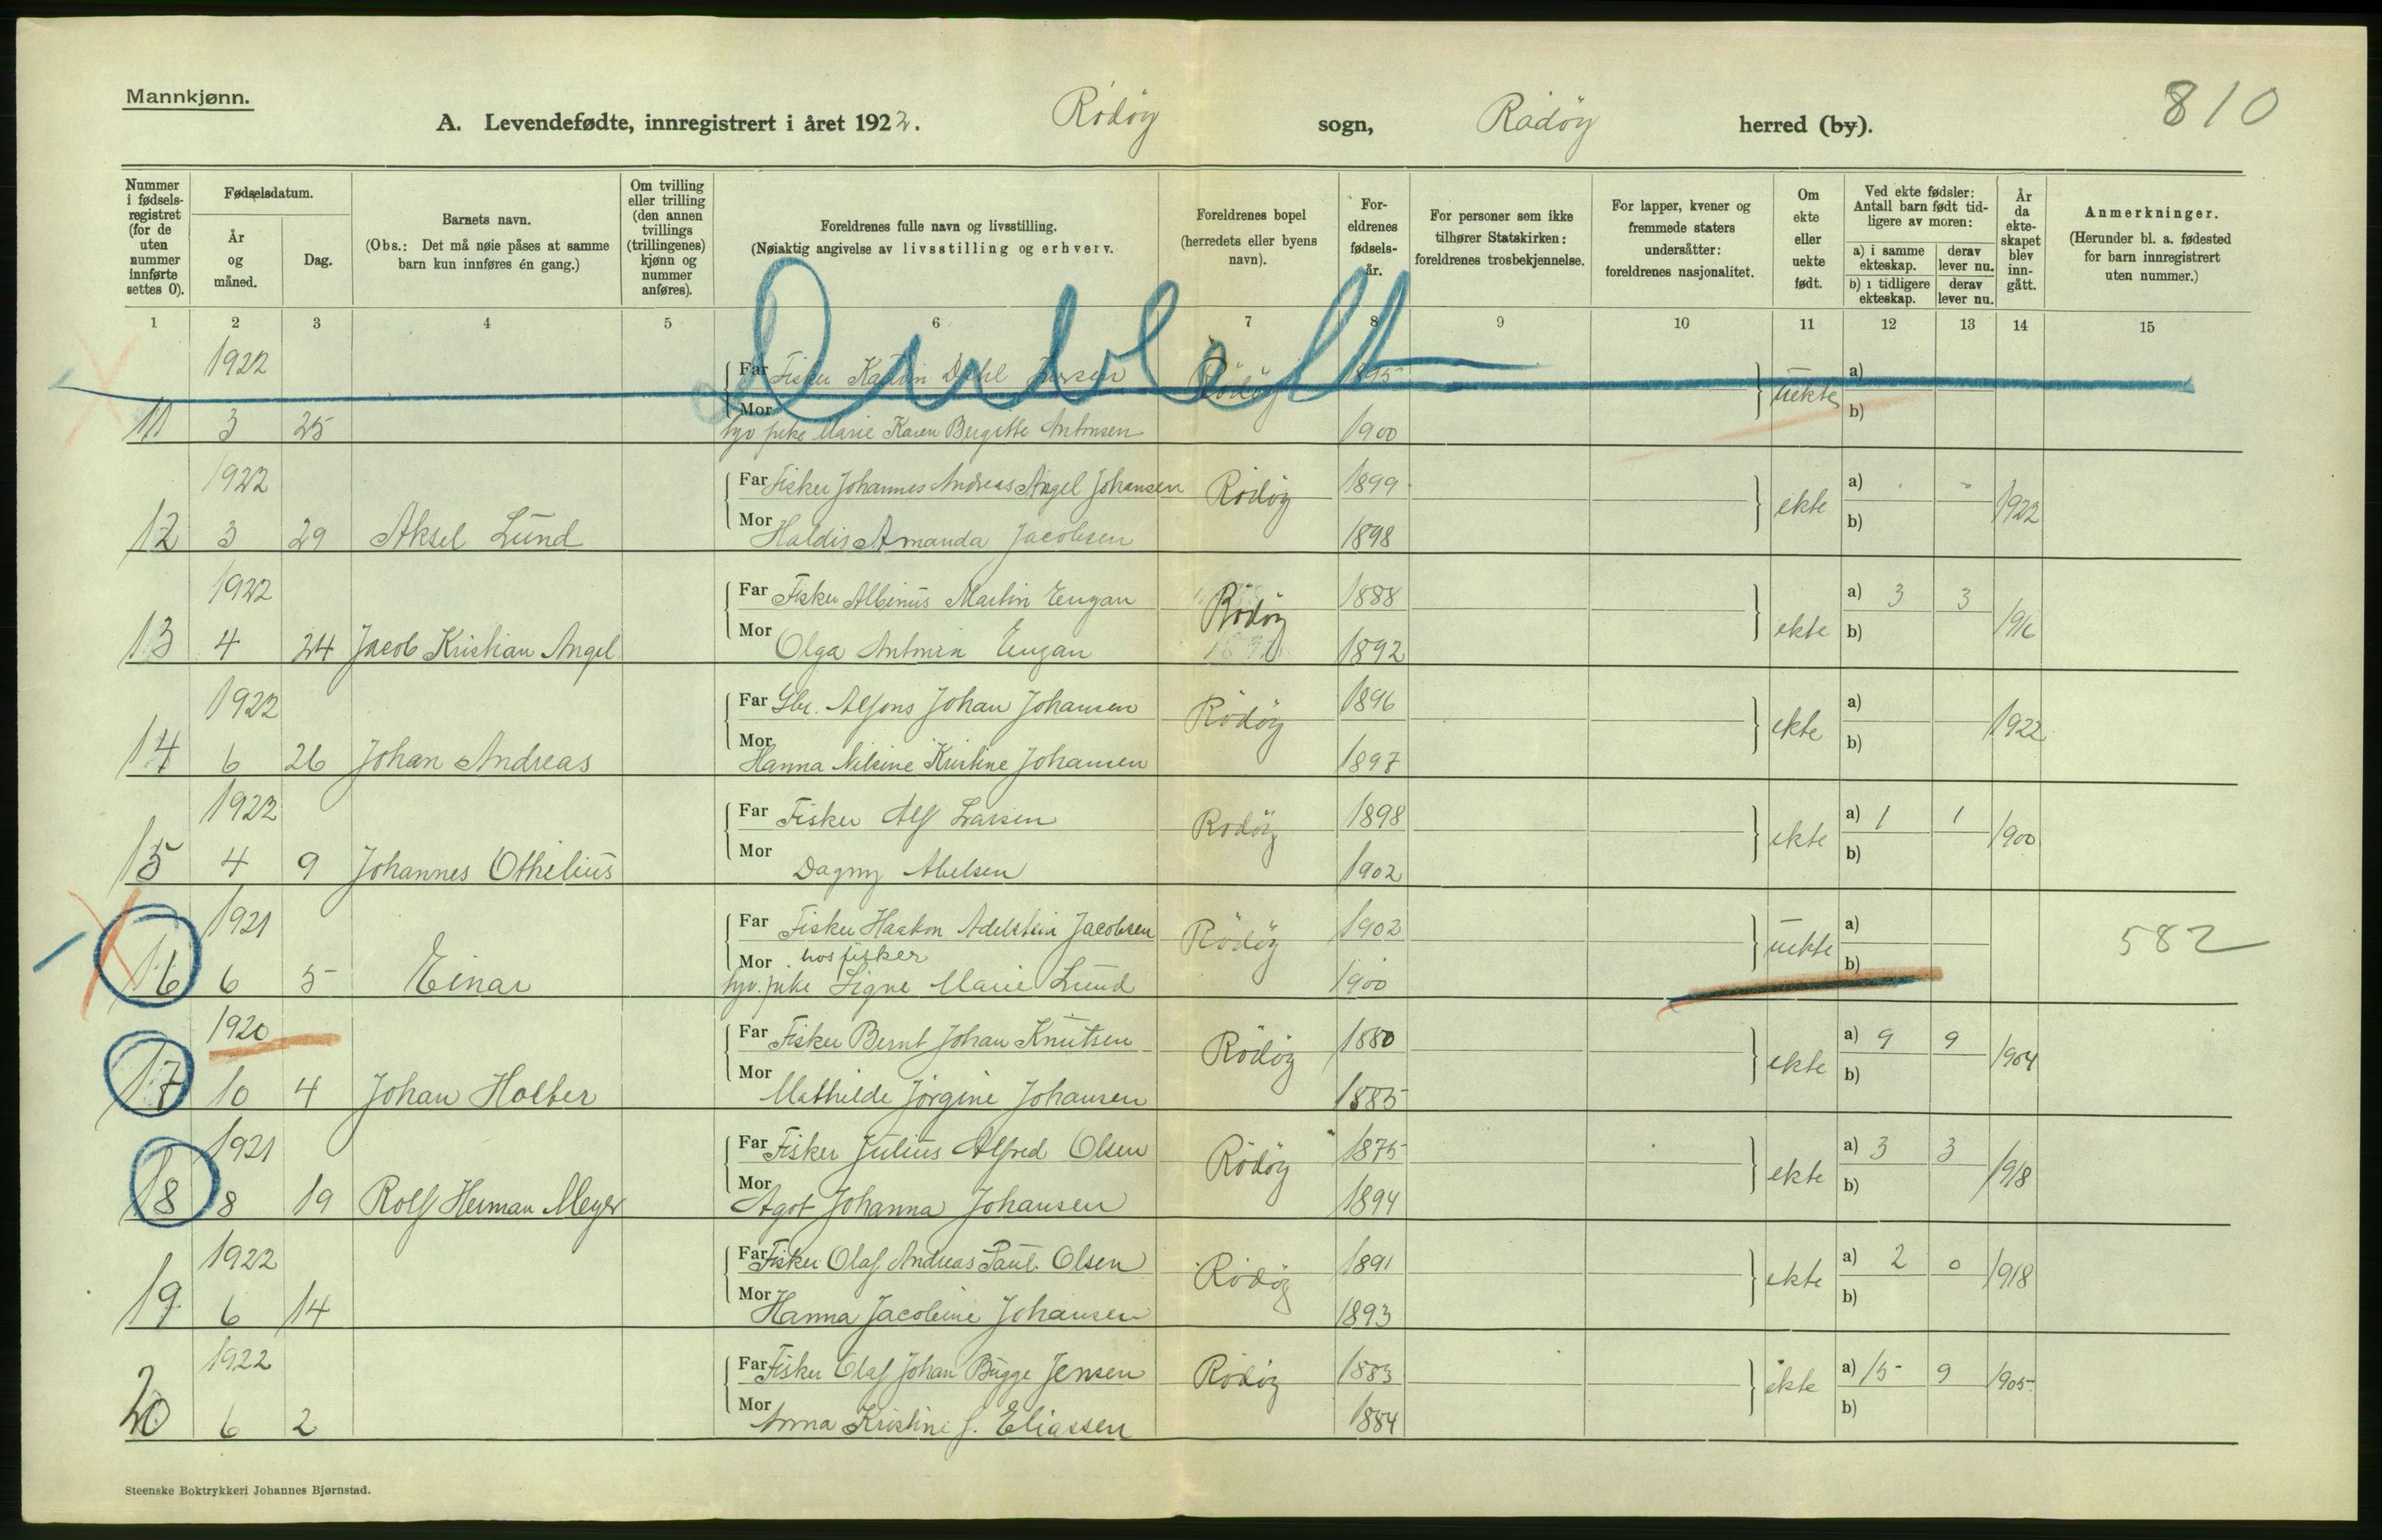 Mannkjønn.
A. Levendefødte, innregistrert i året 1922. Rödöy sogn, Rödöy herred (by).
810
Nummer i fødsels-registret (for de uten nummer innførte settes 0).
Fødselsdatum.
År og måned.
Dag.
Barnets navn.
(Obs.: Det må nøie påses at samme barn kun innføres én gang.)
Om tvilling eller trilling (den annen tvillings (trillingenes) kjønn og nummer anføres).
Foreldrenes fulle navn og livsstilling.
(Nøiaktig angivelse av livsstilling og erhverv.
Foreldrenes bopel (herredets eller byens navn).
For-eldrenes fødsels-år.
For personer som ikke tilhører Statskirken: foreldrenes trosbekjennelse.
For lapper, kvener og fremmede staters undersåtter: foreldrenes nasjonalitet.
Om ekte eller uekte født.
Ved ekte fødsler: Antall barn født tid-ligere av moren:
a) i samme ekteskap.
derav lever nu.
b) i tidligere ekteskap.
derav lever nu.
År da ekte-skapet blev inn-gått.
Anmerkninger.
(Herunder bl. a. fødested for barn innregistrert uten nummer.)
1 2 3 4 5 6 7 8 9 10 11 12 13 14 15
1922 Far Fisker Dahl Rödöy 1895 uekte a)
11 3 25 Mor b)
typ. pike Marie Karen Bergitte Antonsen 1900
1922 Far Fisker Johannes Andreas Angel Johansen Rödöy 1899 ekte a) - - 1922
12 3 29 Aksel Lund Mor Haldis Amanda Jacobsen 1898 b)
1922 Far Fisker Albinus Martin Engan Rödöy 1888 ekte a) 3 3 1916
13 4 24 Jacob Kristian Angel Mor Olga Antonsen Engan 1892 b)
1922 Far Gbr. Alfons Johan Johansen Rödöy 1896 ekte a) 1922
14 6 26 Johan Andreas Mor Hanna Nilsine Kristine Johansen 1897 b)
1922 Far Fisker Alf Larsen Rödöy 1898 ekte a) 1 1 1900
15 4 9 Johannes Othelius Mor Dagny Abelsen 1902 b)
1921 Far Fisker Haakon Adelstein Jacobsen Rödöy 1902 uekte a) 582
hos fisker
16 6 5 Einar Mor pike Signe Marie Lund 1900 b)
1920 Far Fisker Bernt Johan Knutsen Rödöy 1880 ekte a) 9 9 1904
17 10 4 Johan Holter Mor Mathilde Jörgine Johansen 1885 b)
1921 Far Fisker Julius Alfred Olsen Rödöy 1875 ekte a) 3 3 1918
18 8 19 Rolf Herman Meyer Mor Agot Johanna Johansen 1894 b)
1922 Far Fisker Olaf Andreas Paul Olsen Rödöy 1891 ekte a) 2 0 1918
19 6 14 Mor Hanna Jacobine Johansen 1893 b)
1922 Far Fisker Olaf Johan Bugge Jensen Rödöy 1883 ekte a) 15 9 1905
20 6 2 Mor Anna Kristine J. Eliassen 1884 b)
Steenske Boktrykkeri Johannes Bjørnstad.